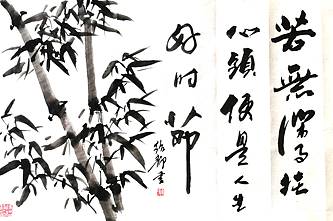 若無事挂
心頭便是人生
好时節
書